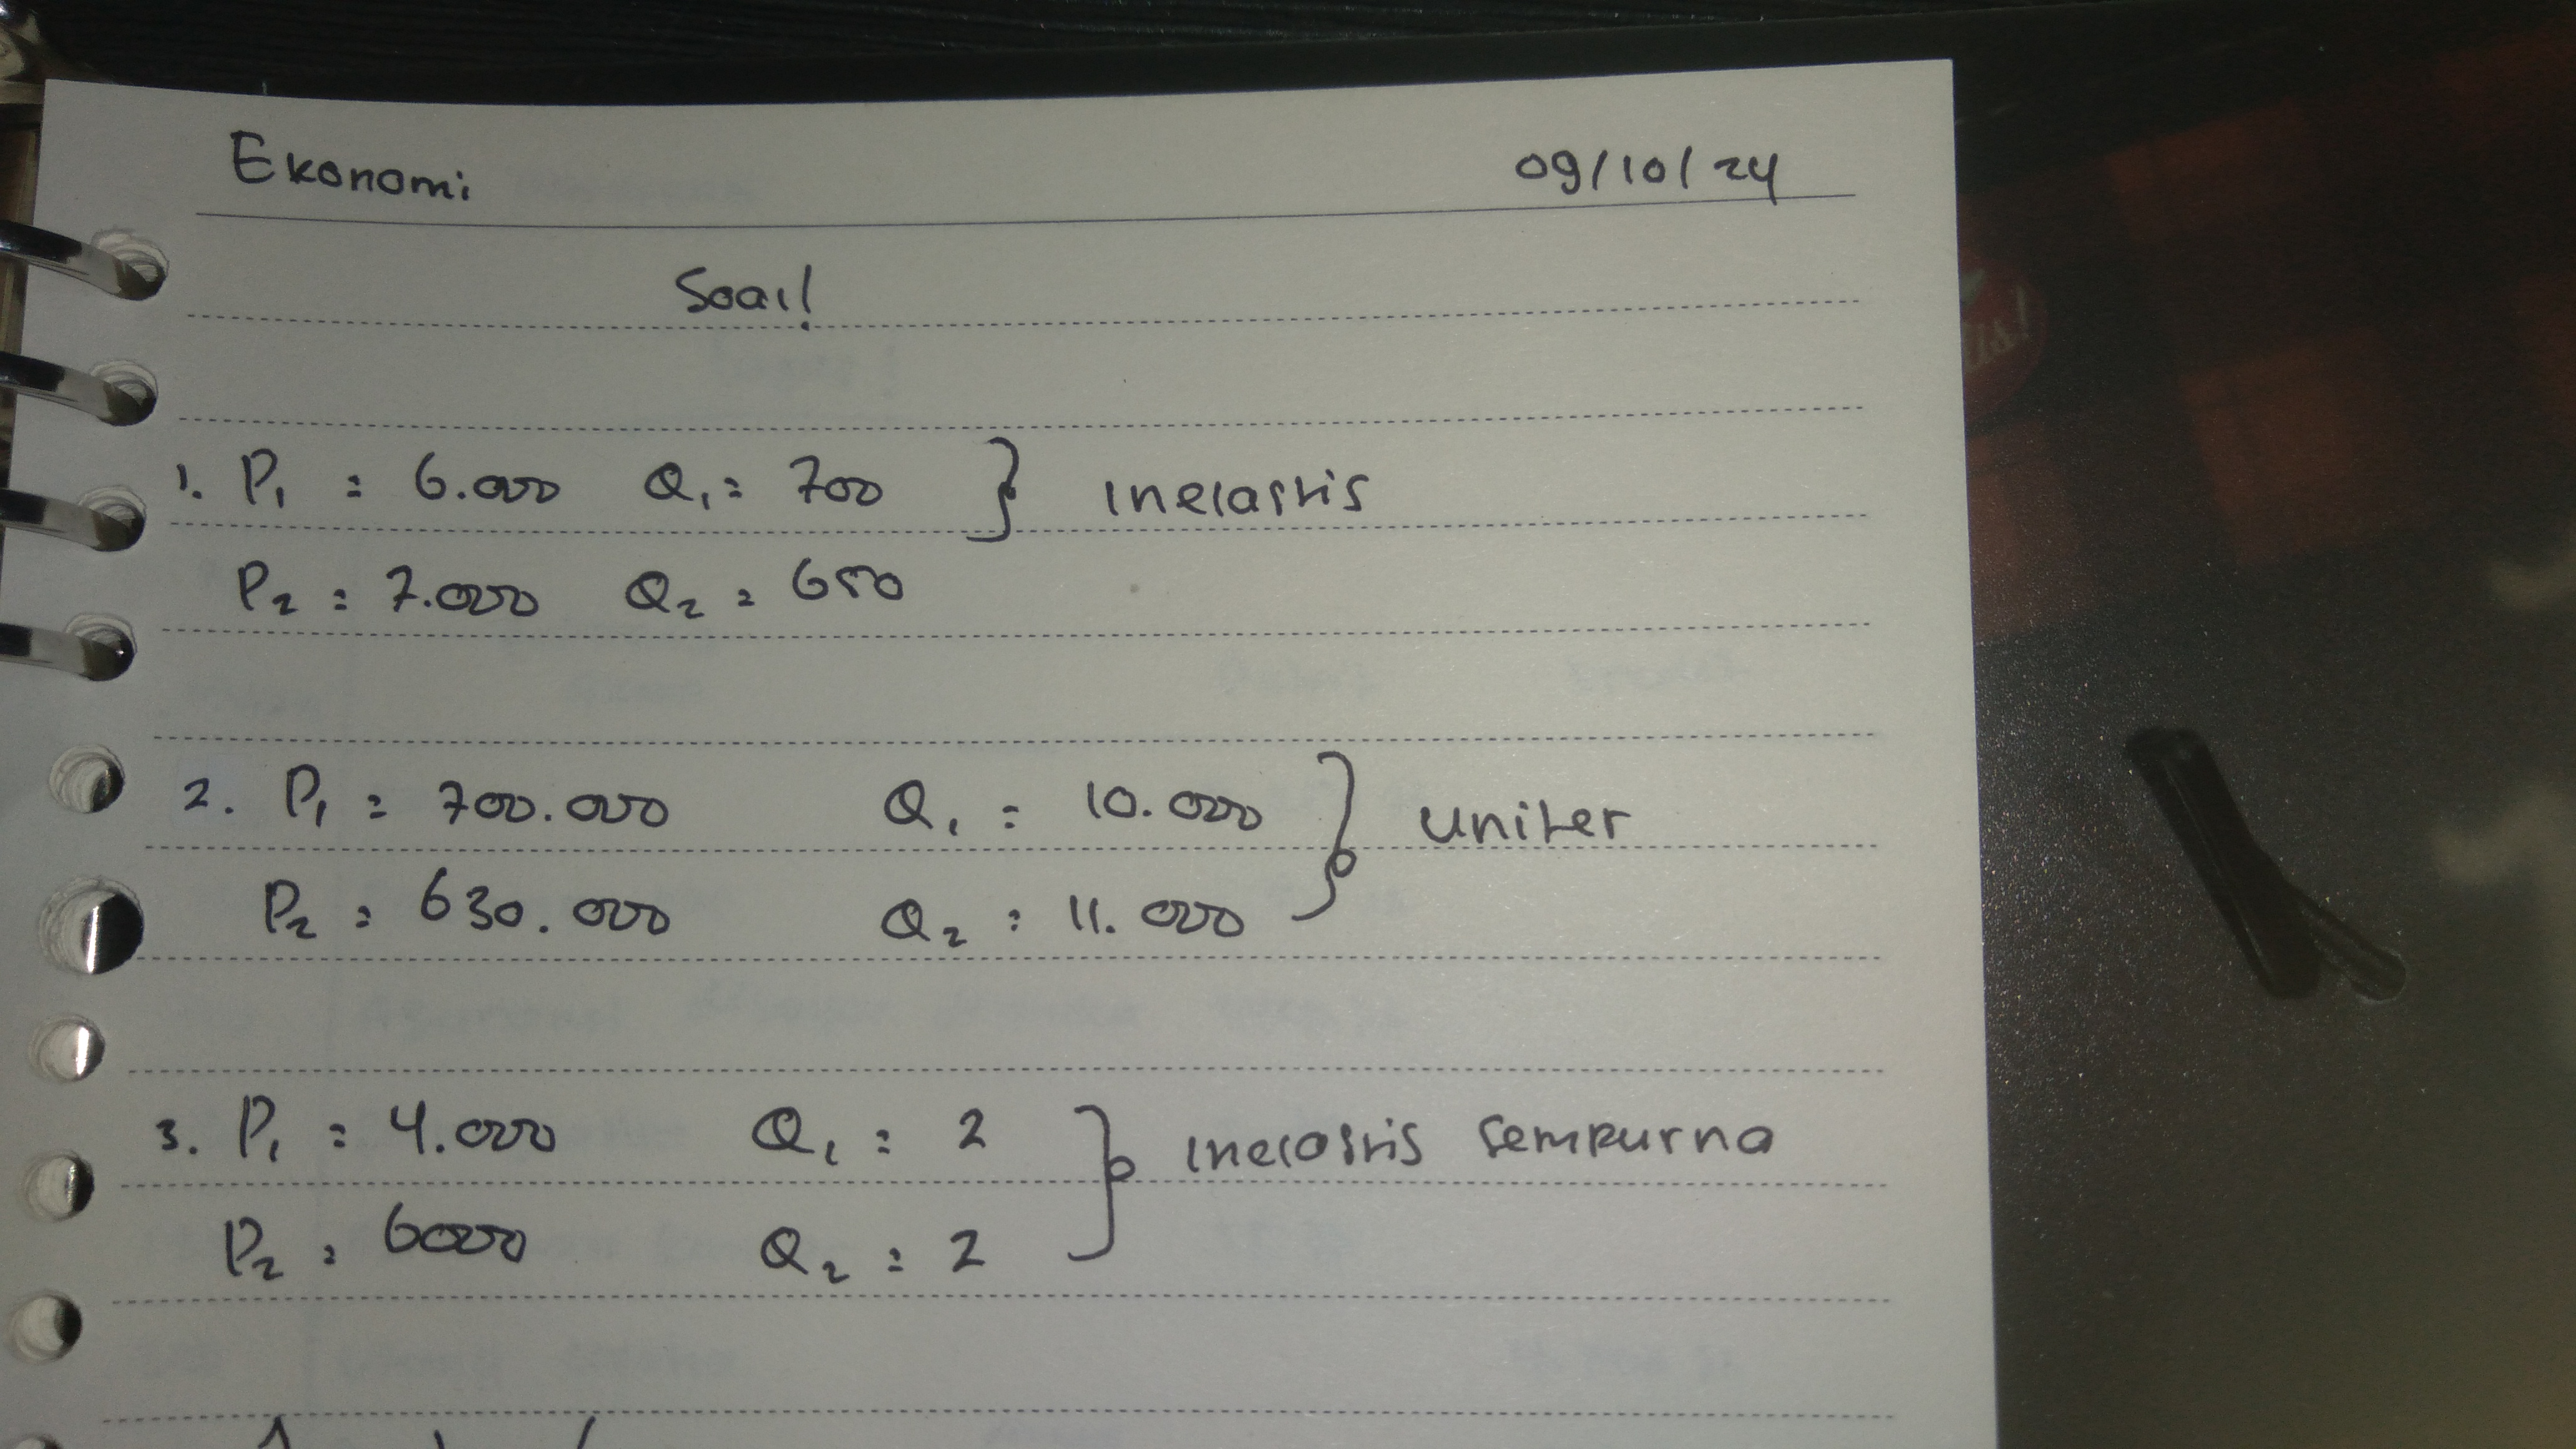 Ekonomi 09/10/24
Soal!
1. P₁ = 6.000 Q₁ = 700 } Inelastis
P₂ = 7.000 Q₂ = 650
2. P₁ = 700.000 Q₁ = 10.000 } uniter
P₂ = 630.000 Q₂ = 11.000
3. P₁ = 4.000 Q₁ = 2 } Inelastis sempurna
P₂ = 6000 Q₂ = 2